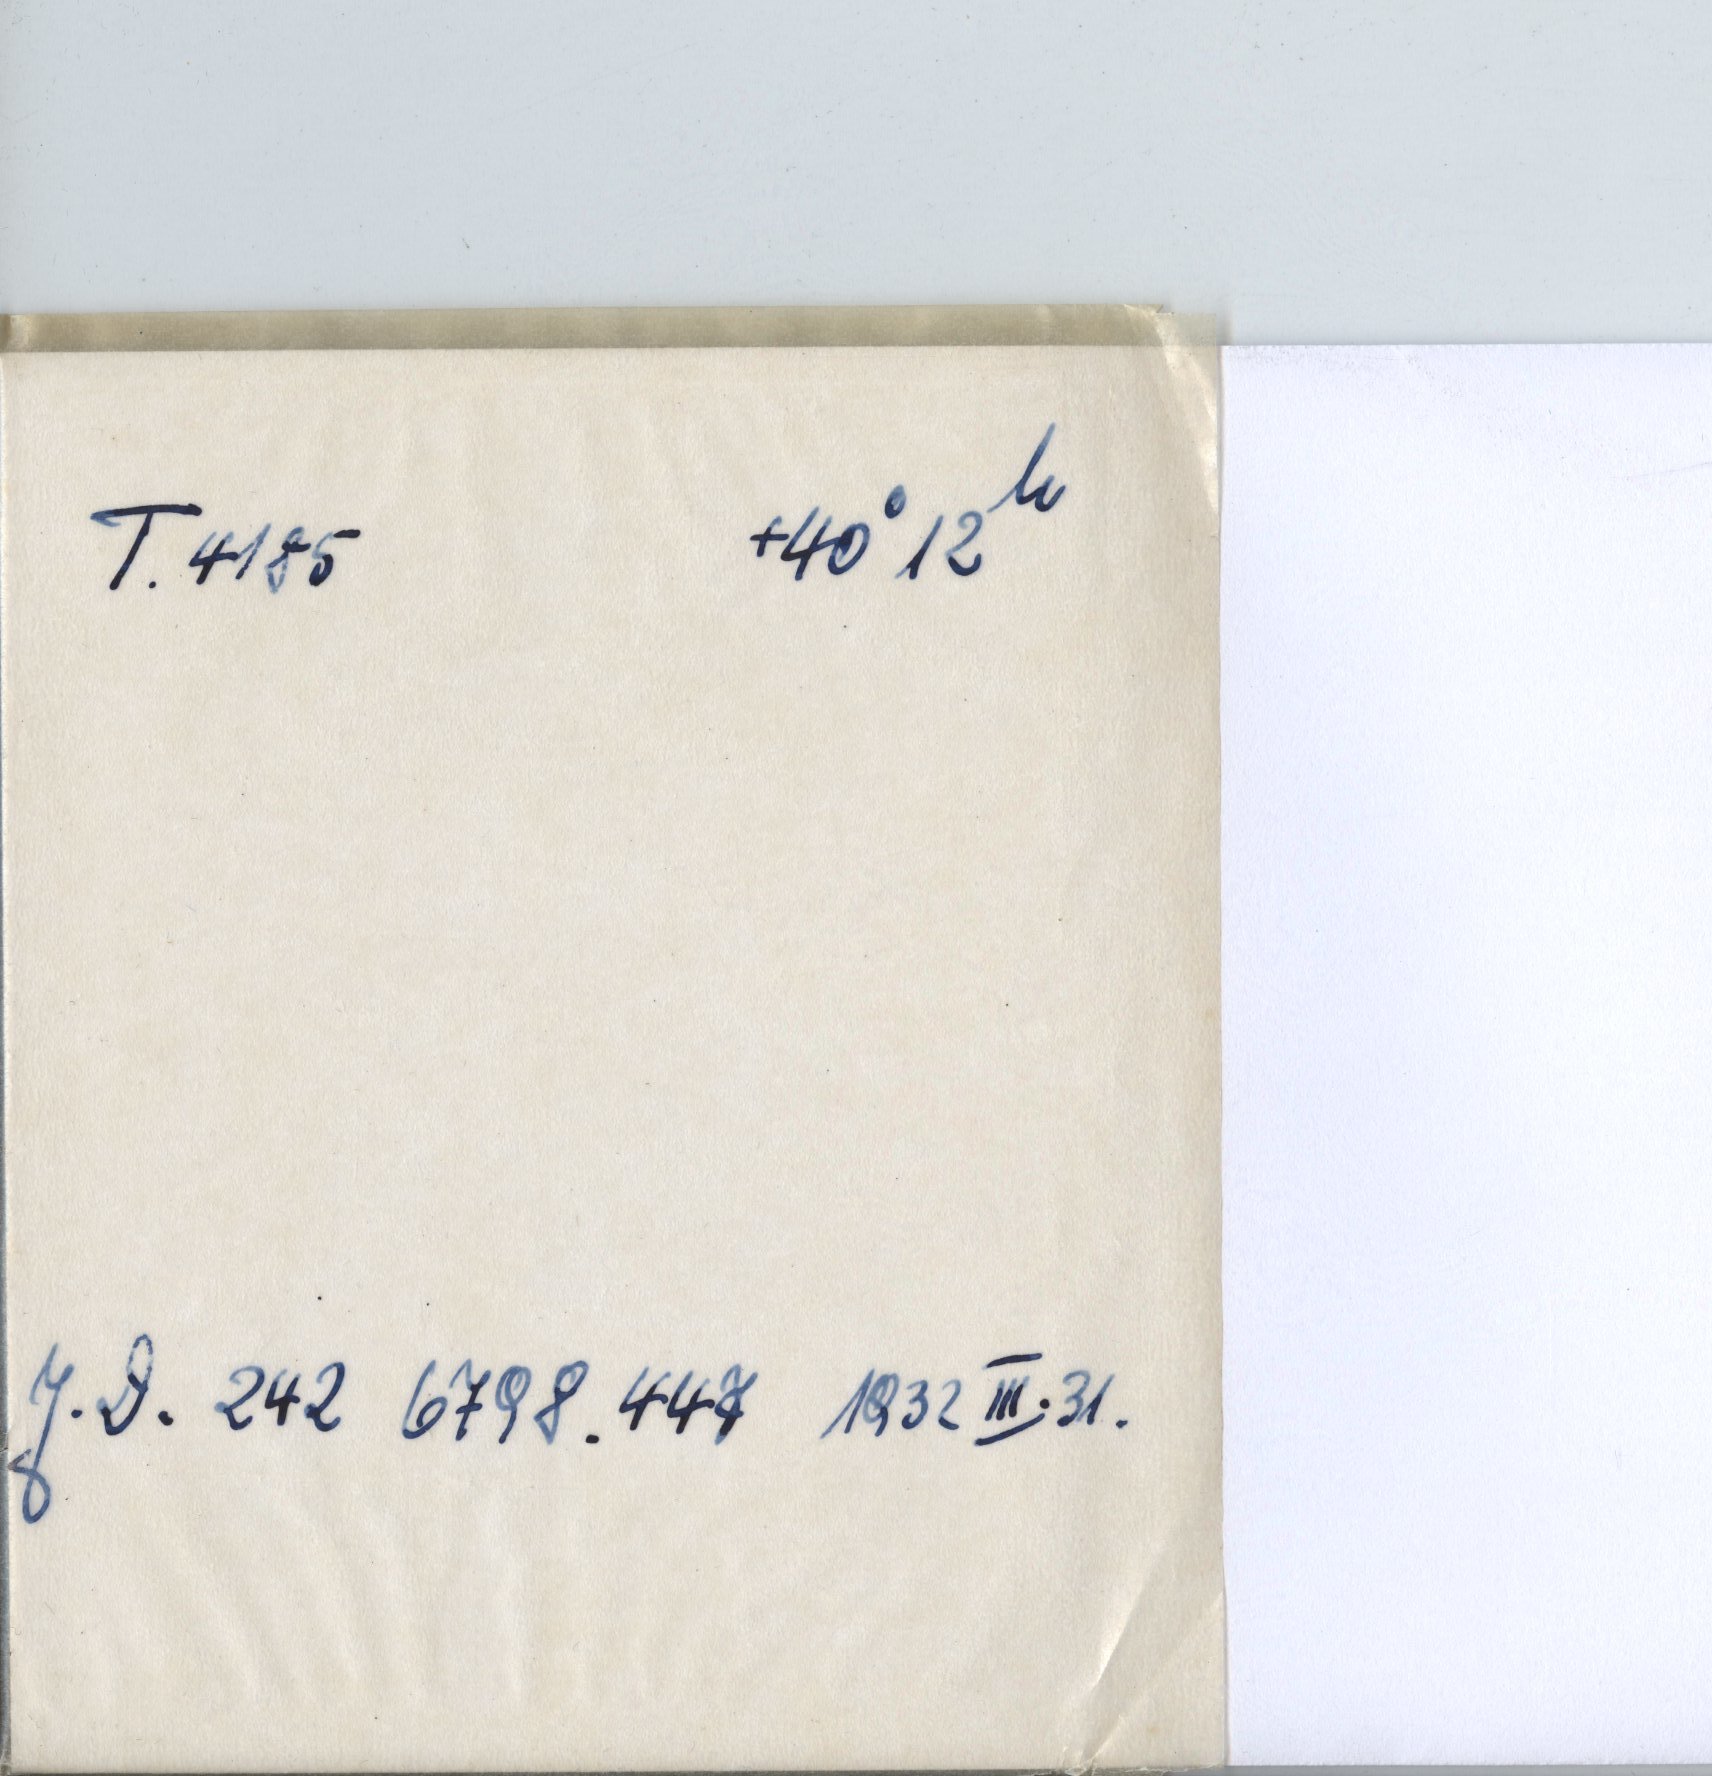 T. 4185 +40° 12h
J.D. 242 6798.447 1932 III. 31.